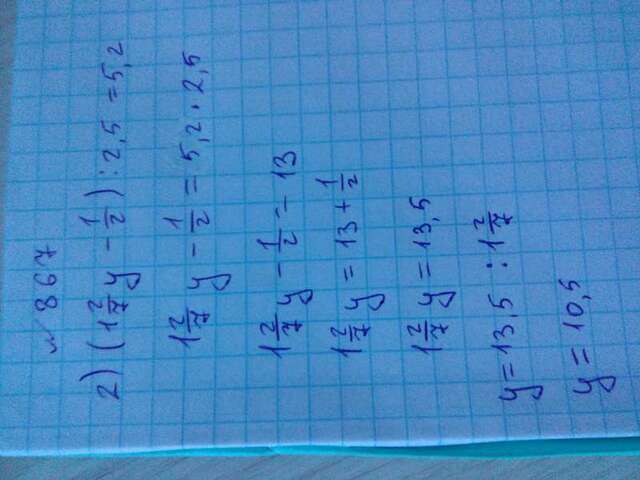 № 867
2) (1 2/7 y - 1/2) : 2,5 = 5,2
1 2/7 y - 1/2 = 5,2 · 2,5
1 2/7 y - 1/2 = 13
1 2/7 y = 13 + 1/2
1 2/7 y = 13,5
y = 13,5 : 1 2/7
y = 10,5